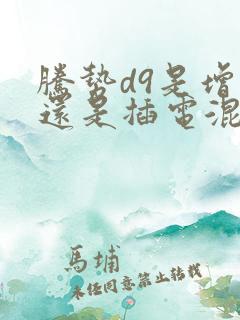 騰勢d9是增
還是插電混
馬埔
未經同意禁止轉載